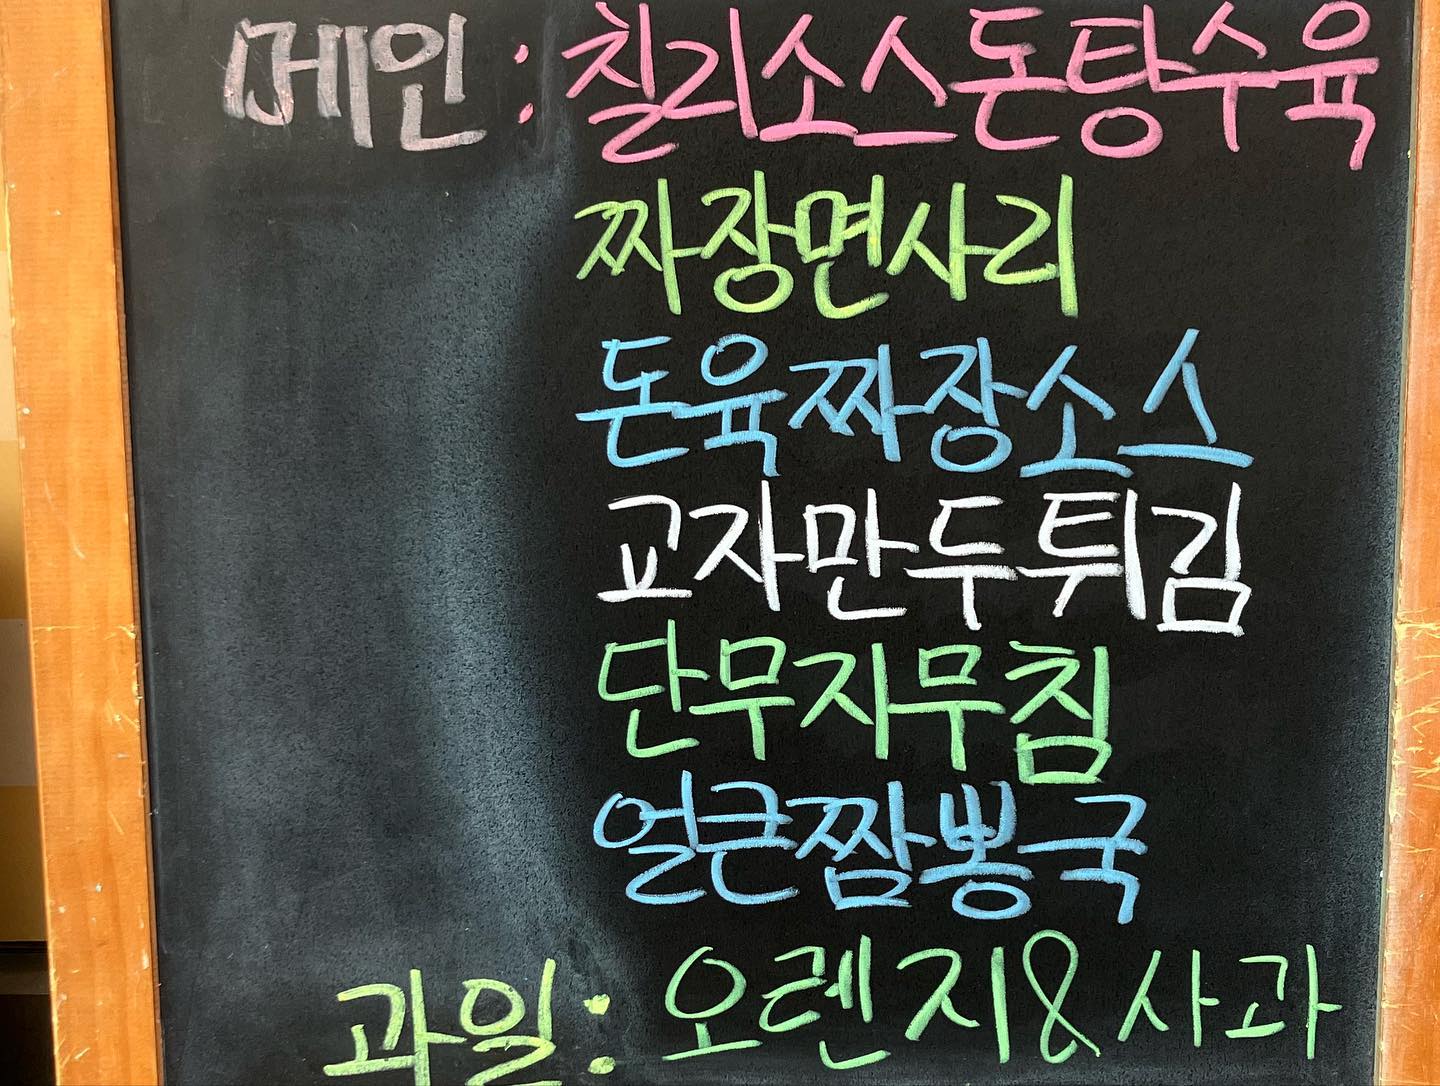 메인 : 칠리소스돈탕수육
짜장면사리
돈육짜장소스
교자만두튀김
단무지무침
얼큰짬뽕국
과일 : 오렌지&사과